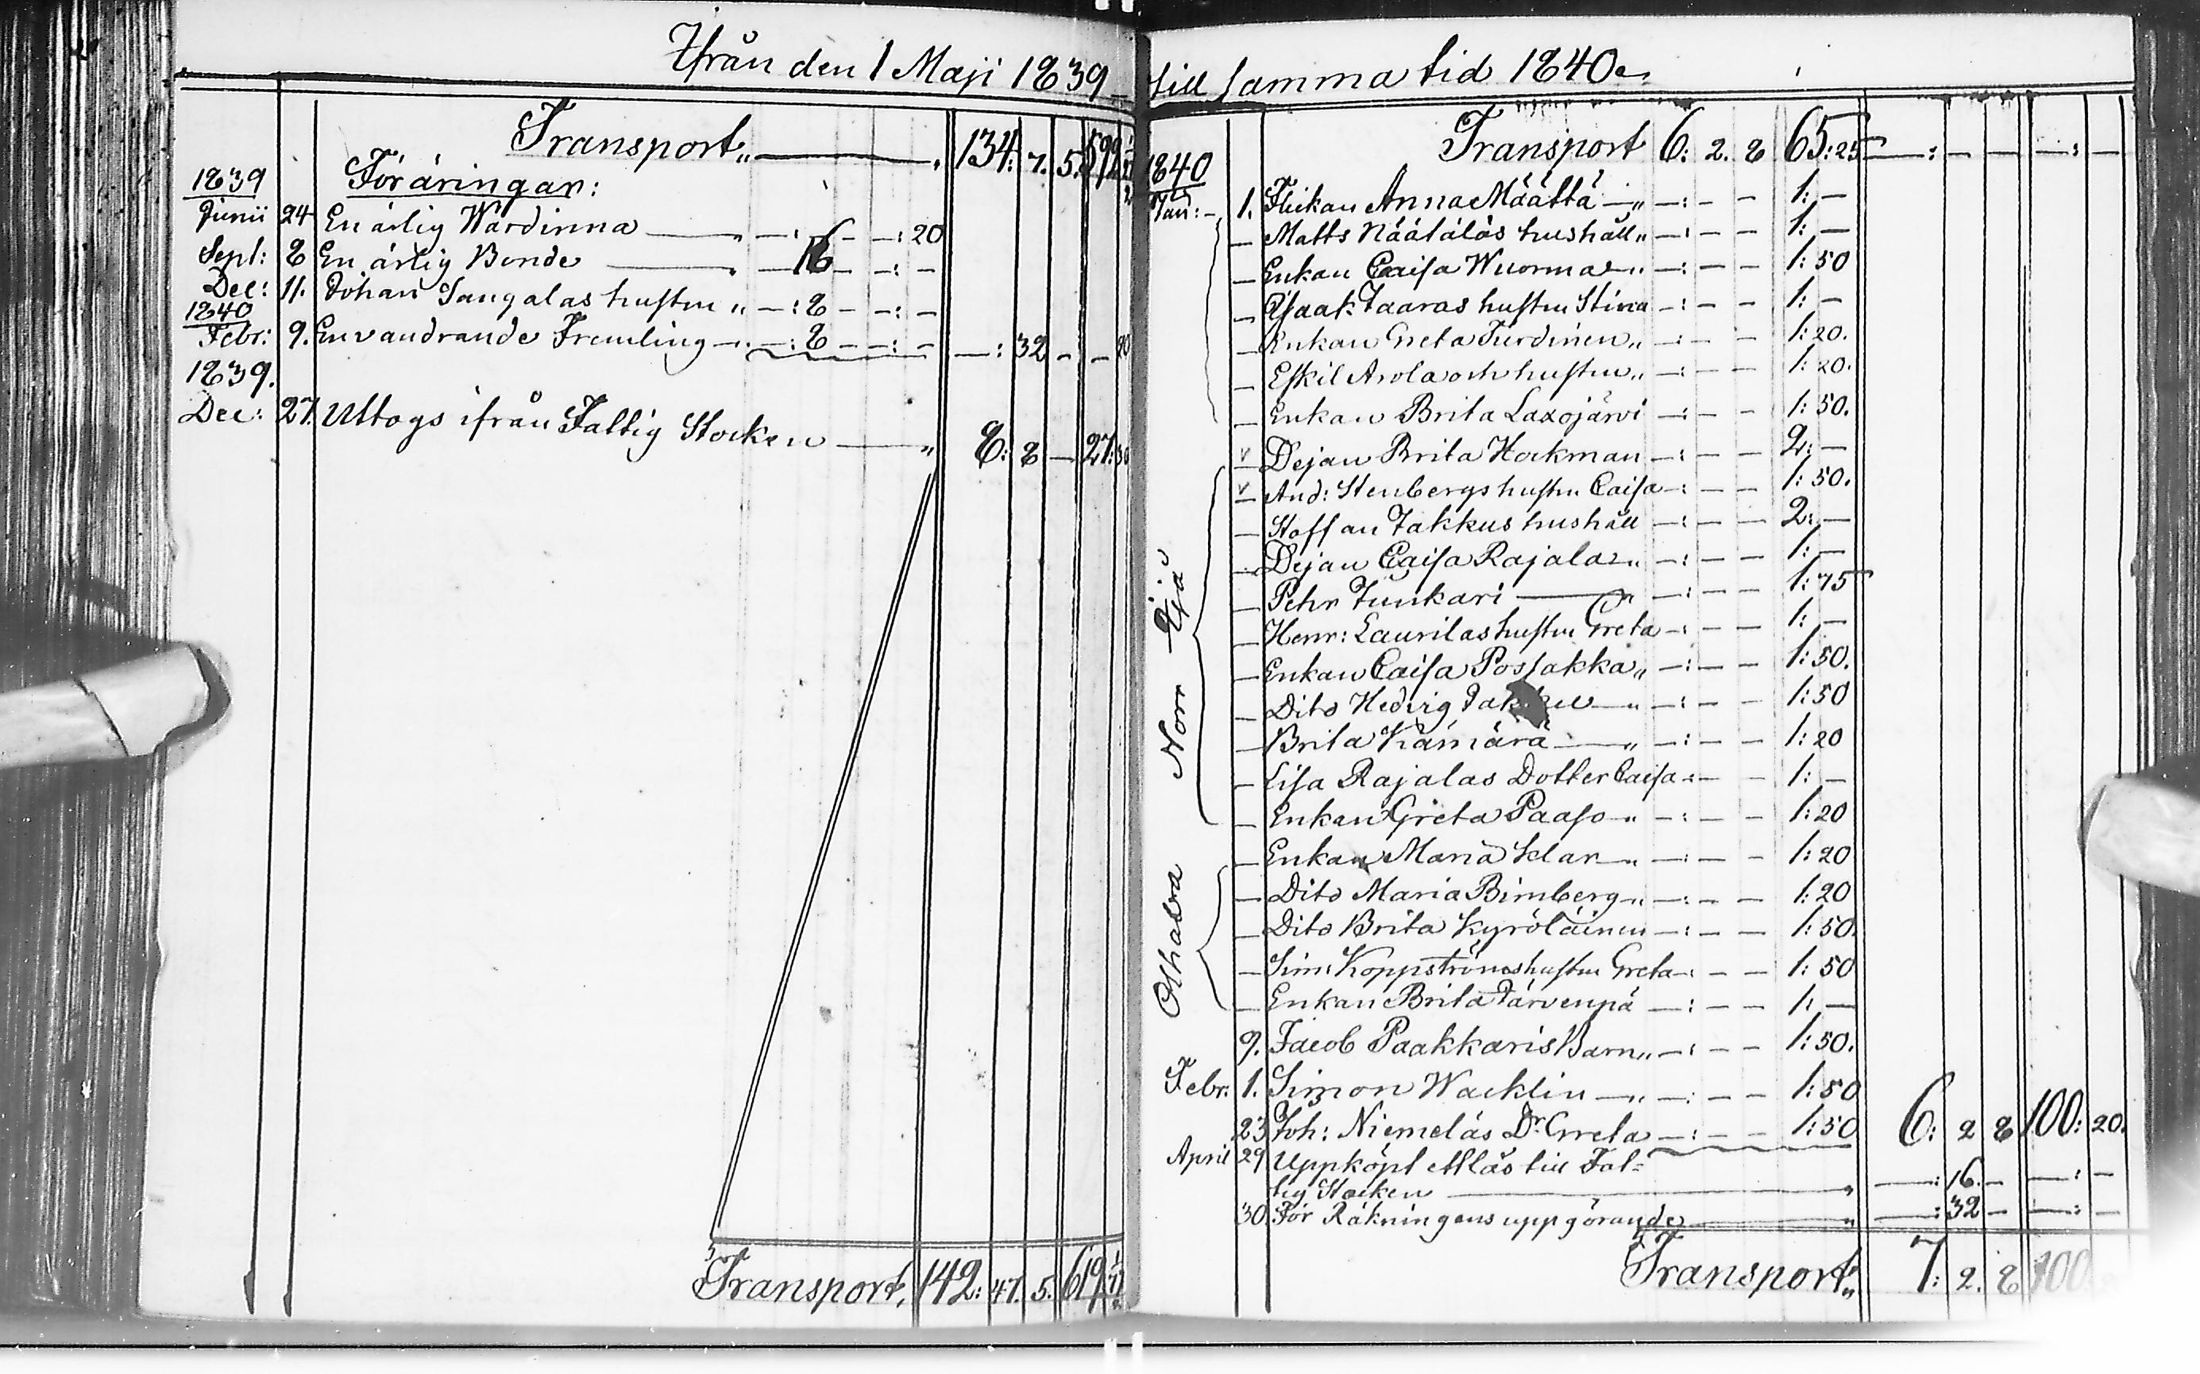 Ifrån den 1 Maji 1839
Transport „ — „ 134: 7. 5.
1839 Föräringar:
Junii 24 En ärlig Wärdinna — „ —: — —: 20
Sept: 8 En ärlig Bonde — „ — 16 — —: —
Dec: 11. Johan Sangalas hustru „ —: 8 — —: —
1840
Febr: 9. En vandrande Fremling — „ —: 8 — —: — —: 32 — — 20
1839.
Dec: 27. Uttogs ifrån Fattig Stocken — „ 8: 8 — 27: 30
Transport, 142: 47. 5. 619
till samma tid 1840
Transport 6: 2. 8 65: 25 —: — — —: —
1840
Jan: — 1. Flickan Anna Määttä — „ —: — — 1: —
— Matts Näätäläs hushåll „ —: — — 1: —
— Enkan Caisa Wuorma „ —: — — 1: 50
— Isaak Taaras hustru Stina —: — — 1: —
— Enkan Greta Turdinen „ —: — — 1: 20.
— Eskil Arola och hustru „ —: — — 1: 20.
— Enkan Brita Laxojärvi —: — — 1: 50.
v Dejan Brita Hockman —: — — 2: —
v And: Stenbergs hustru Caisa —: — — 1: 50.
— Staffan Takkus hushåll —: — — 2: —
— Dejan Caisa Rajala „ —: — — 1: —
— Pehr Junkari — „ —: — — 1: 75
— Henr: Laurilas hustru Greta —: — — 1: —
— Enkan Caisa Possakka „ —: — — 1: 50.
— Dito Hedvig — „ —: — — 1: 50
— Brita Kämärä — „ —: — — 1: 20
— Lisa Rajalas Dotter Caisa —: — — 1: —
— Enkan Greta Paaso — „ —: — — 1: 20
Norr Ijå
— Enkan Maria Klar — „ —: — — 1: 20
— Dito Maria Birnberg „ —: — — 1: 20
— Dito Brita Kyröläinen —: — — 1: 50.
— Sim: Koppströms hustru Greta —: — — 1: 50
— Enkan Brita Järvenpä —: — — 1: —
Olhava
9. Jacob Paakkaris Barn „ —: — — 1: 50.
Febr: 1. Simon Wacklin — „ —: — — 1: 50
23 Joh: Niemeläs Dr Greta —: — — 1: 50 6: 2 8 100: 20.
April 29 Uppköpt ett Lås till Fat=
tig Stocken — „ —: 16. — —: —
30. För Räkningens uppgörande — „ —: 32 — —: —
Transport „ 7: 2. 8 100